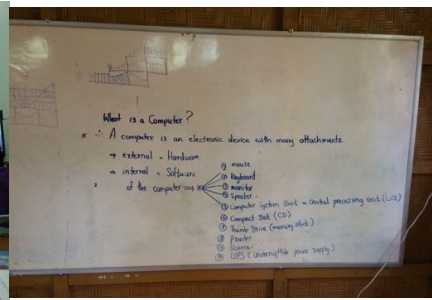 What is a Computer?
* ∴ A computer is an electronic device with many attachments.
→ external = Hardware
→ internal = Software
of the computer ⇒
① mouse
② Keyboard
③ monitor
④ Speaker
⑤ Computer System Unit = Central processing Unit
⑥ Compact Disk (CD)
⑦ Thumb Drive (memory stick)
⑧ Printer
⑨ Scanner
⑩ UPS (Uninterruptible power supply)